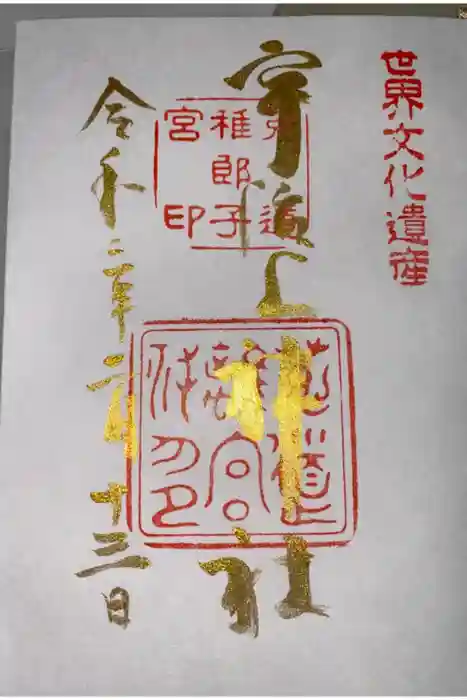 世界文化遺産
宇治上神社
菟道
稚郎子
宮印
令和二年二月十三日